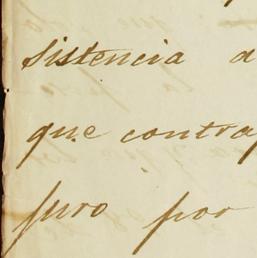 sistencia a
que contra
juro por